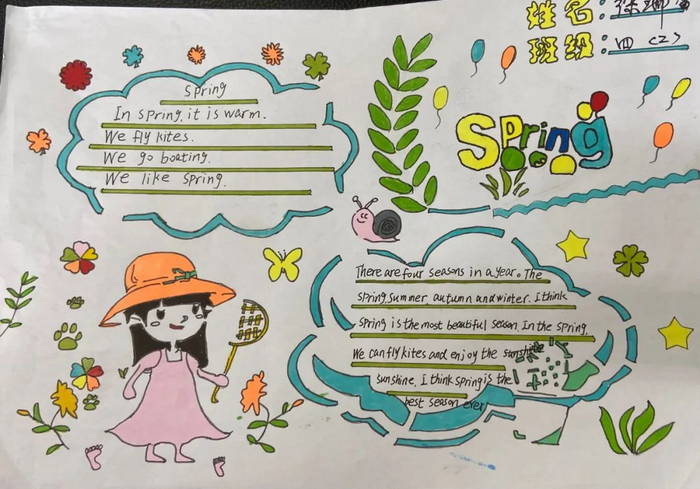 姓名:
班级:四(2)
Spring
Spring
In Spring, it is warm.
We fly kites.
We go boating.
We like Spring.
There are four seasons in a year. The
spring, summer, autumn and winter. I think
Spring is the most beautiful season. In the Spring,
We can fly kites and enjoy the sunshine
sunshine. I think spring is the
best season ever